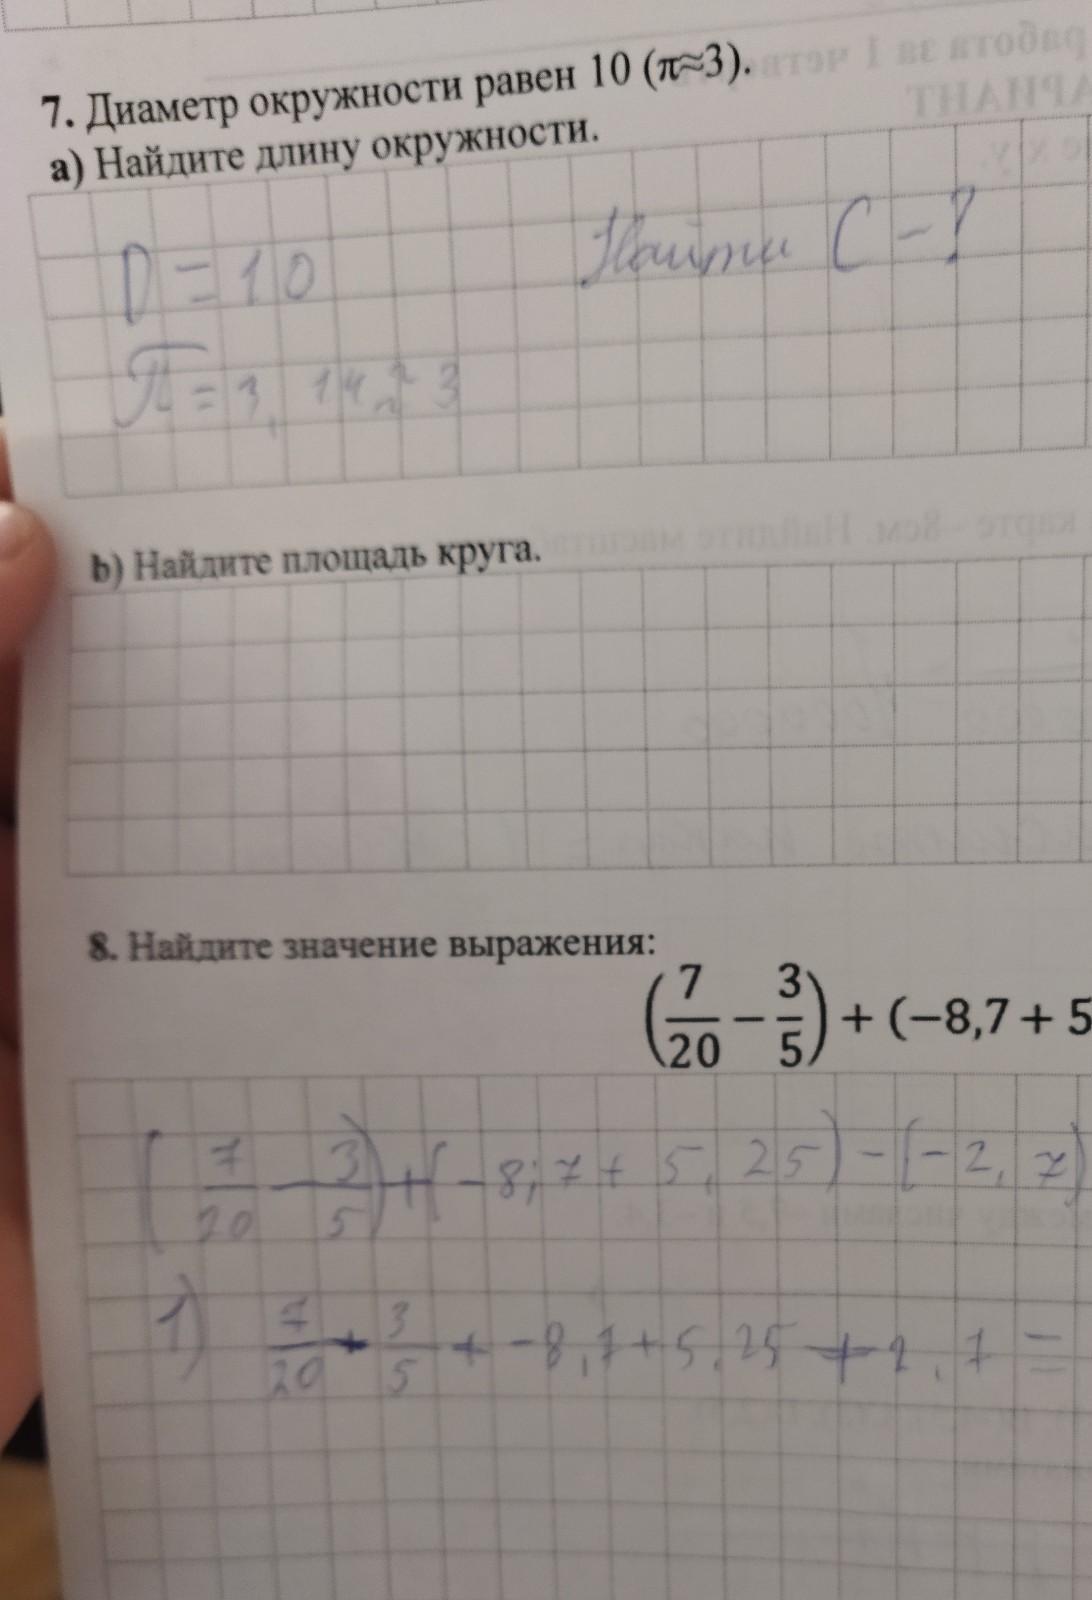 7. Диаметр окружности равен 10 (π≈3).
а) Найдите длину окружности.
D = 10 Найти C - ?
π = 3,14 ≈ 3
b) Найдите площадь круга.
8. Найдите значение выражения:
(7/20 − 3/5) + (−8,7 + 5
(7/20 − 3/5) + (−8,7 + 5,25) − (−2,7)
1) 7/20 + 3/5 + −8,7 + 5,25 + 2,7 =